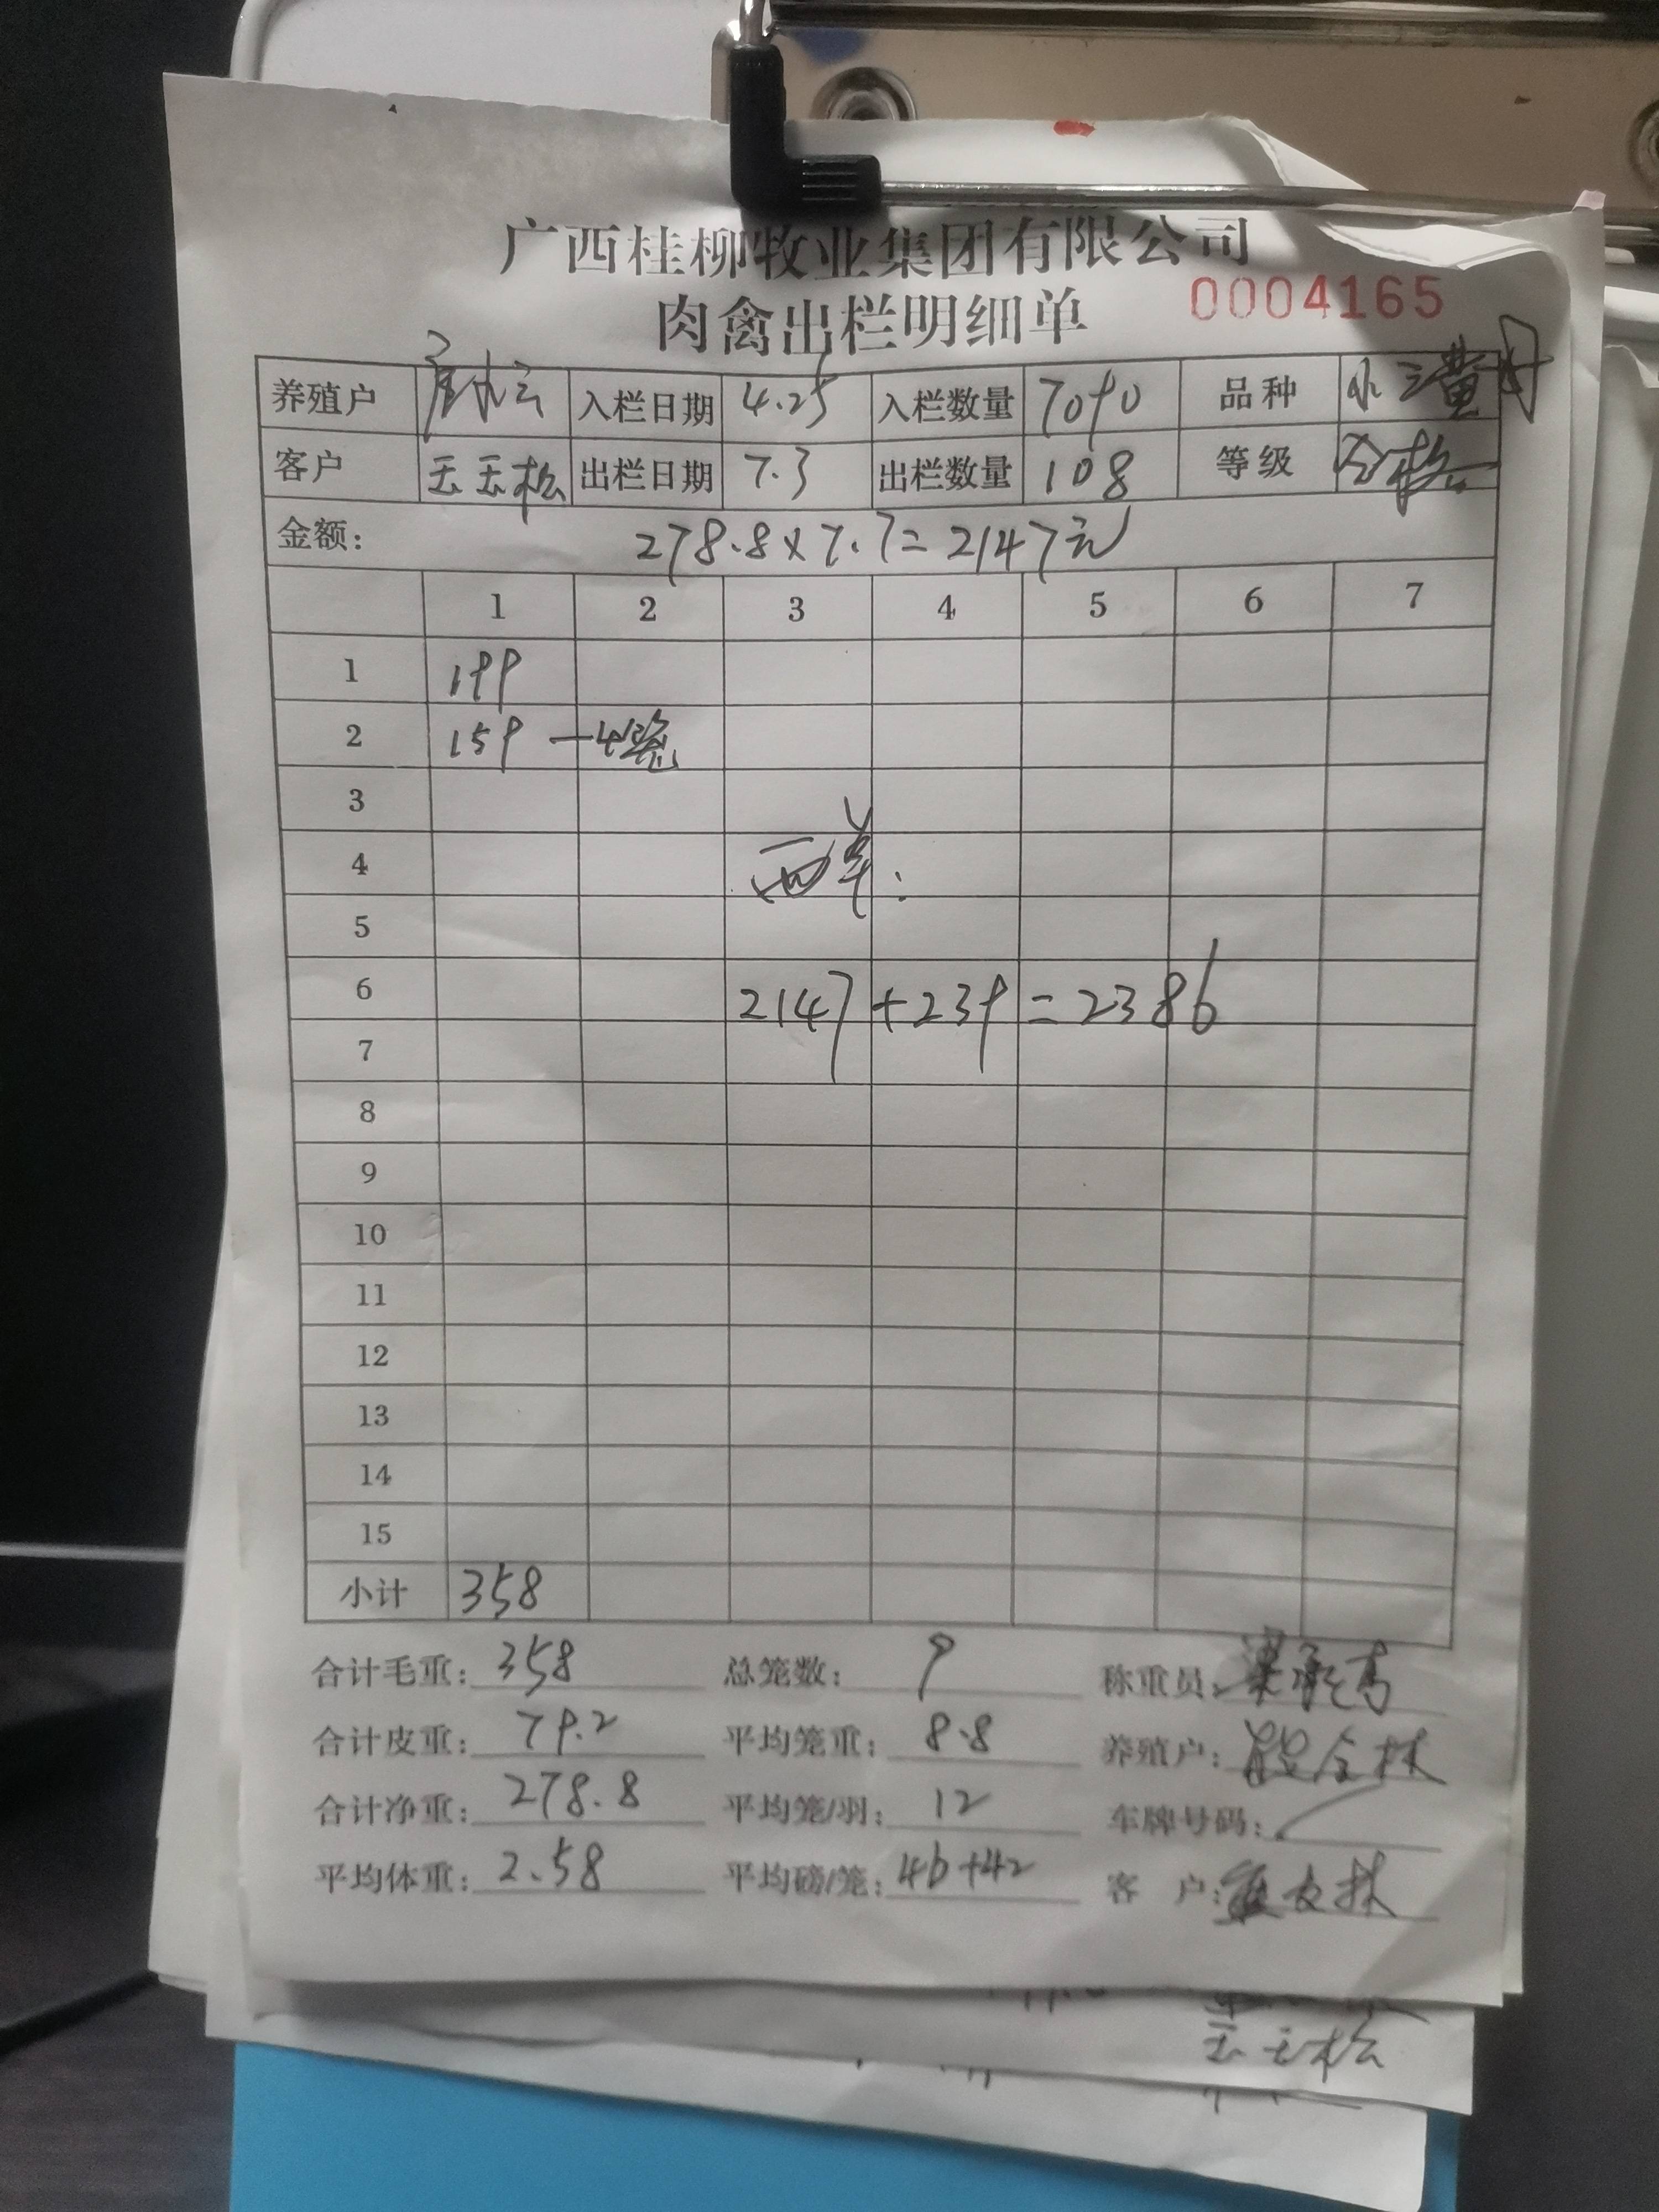 广西桂柳牧业集团有限公司
肉禽出栏明细单 0004165
养殖户 入栏日期 4.25 入栏数量 7090 品种 小三黄母
客户 王玉松 出栏日期 7.3 出栏数量 108 等级 合格
金额: 278.8×7.7=2147元
1 2 3 4 5 6 7
1 199
2 159 —4笼
3
4 两单:
5
6 2147+239=2386
7
8
9
10
11
12
13
14
15
小计 358
合计毛重: 358 总笼数: 9 称重员:
合计皮重: 79.2 平均笼重: 8.8 养殖户:
合计净重: 278.8 平均笼/羽: 12 车牌号码: /
平均体重: 2.58 平均磅/笼: 46+42 客户: